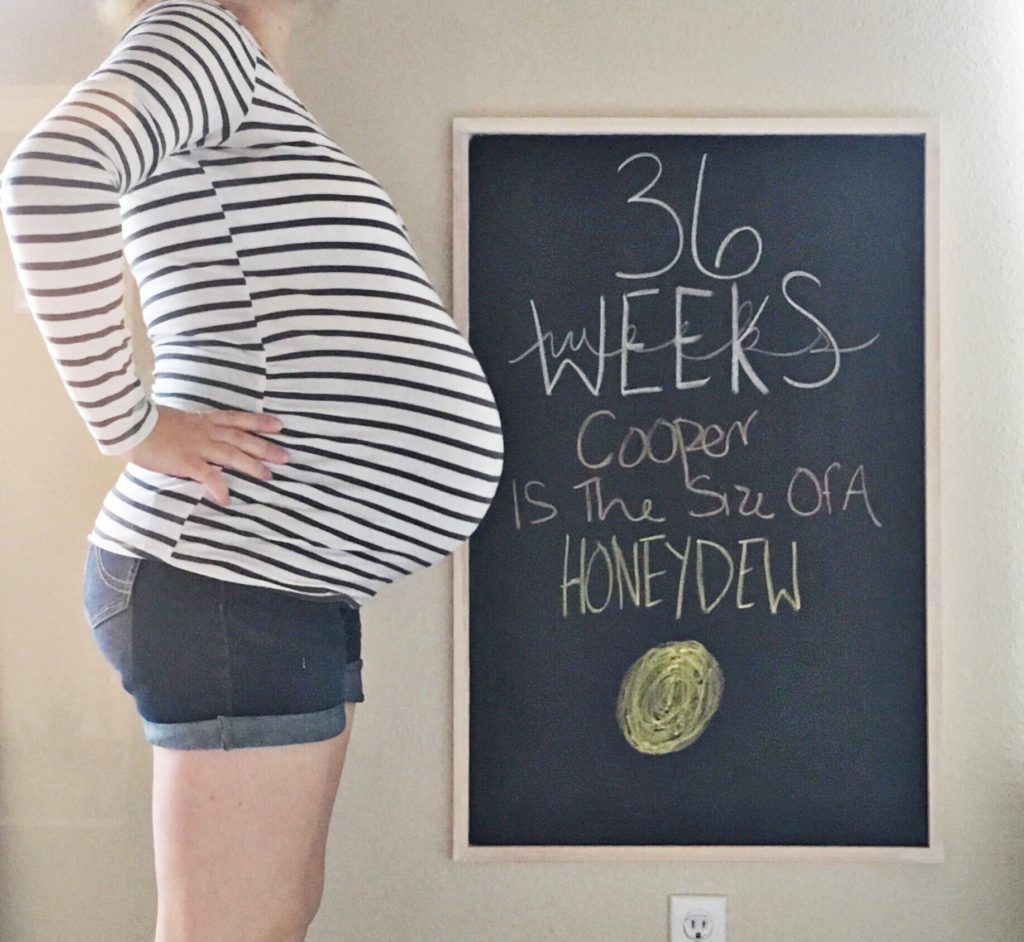 36
WEEKS
Cooper
IS The Size Of A
HONEYDEW